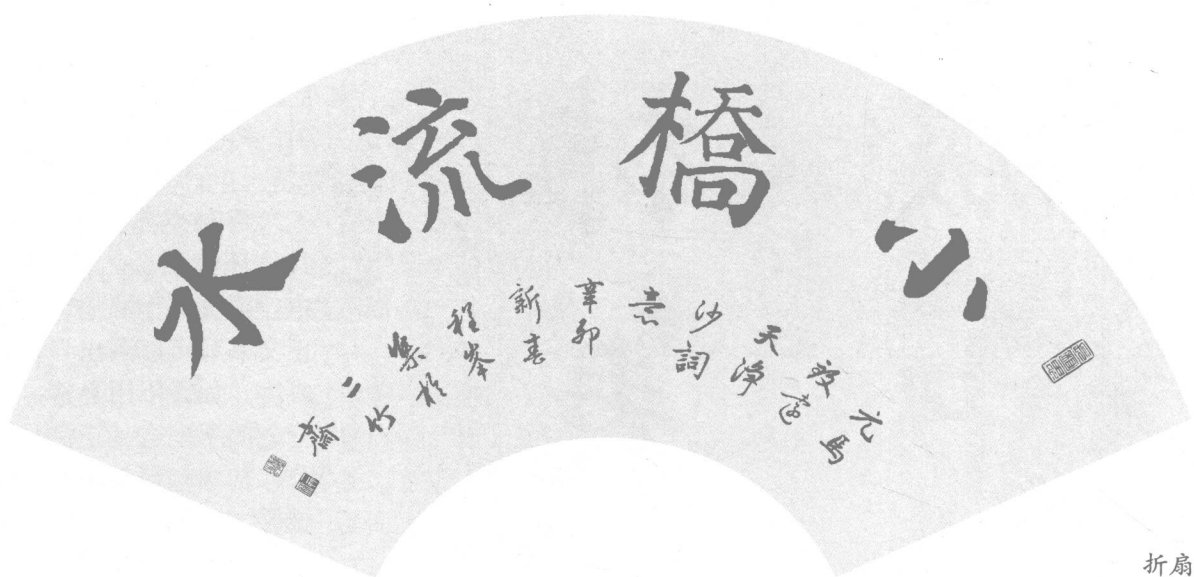 小橋流水
元馬
致遠
天淨
沙詞
意
辛卯
新春
程峯
樂於
二竹
齋
折扇